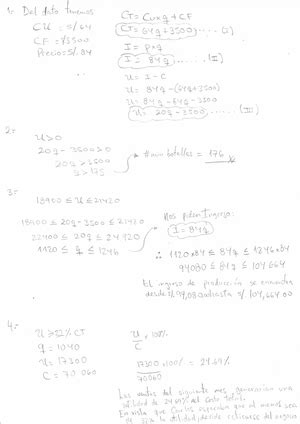 1.- Del dato tenemos
CU = S/ 64
CF = S/ 3500
Precio = S/. 84
CT = Cu x q + CF
CT = 64q + 3500 ..... (I)
I = p x q
I = 84q ..... (II)
U = I - C
U = 84q - (64q + 3500)
U = 84q - 64q - 3500
U = 20q - 3500 ..... (III)
2.-
U > 0
20q - 3500 > 0
20q > 3500
q > 175
# min botellas = 176
3.-
18900 ≤ U ≤ 21420
18900 ≤ 20q - 3500 ≤ 21420
22400 ≤ 20q ≤ 24920
1120 ≤ q ≤ 1246
Nos piden Ingreso:
I = 84q
∴ 1120x84 ≤ 84q ≤ 1246x84
94080 ≤ 84q ≤ 104 664
El ingreso de producción se encuentra
desde S/. 94,080 hasta S/ 104,664.00
4.-
U ≥ 32% CT
q = 1040
U = 17300
C = 70 060
U/C x 100%
17300 x 100% / 70060 = 24.69%
Las ventas del siguiente mes generaron una
utilidad de 24.69% del costo total.
En vista que Carlos esperaba que al menos sea
la utilidad, decide retirarse del negocio